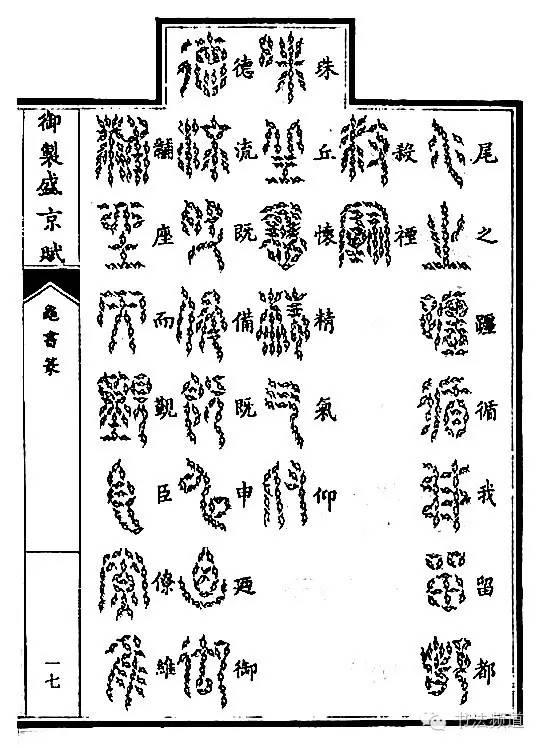 尾之躔循我留都
殺禋
珠丘懷精氣仰
德流既備既申廼御
黼座而覲臣僚維
御製盛京賦
龜書篆
一七
书法频道